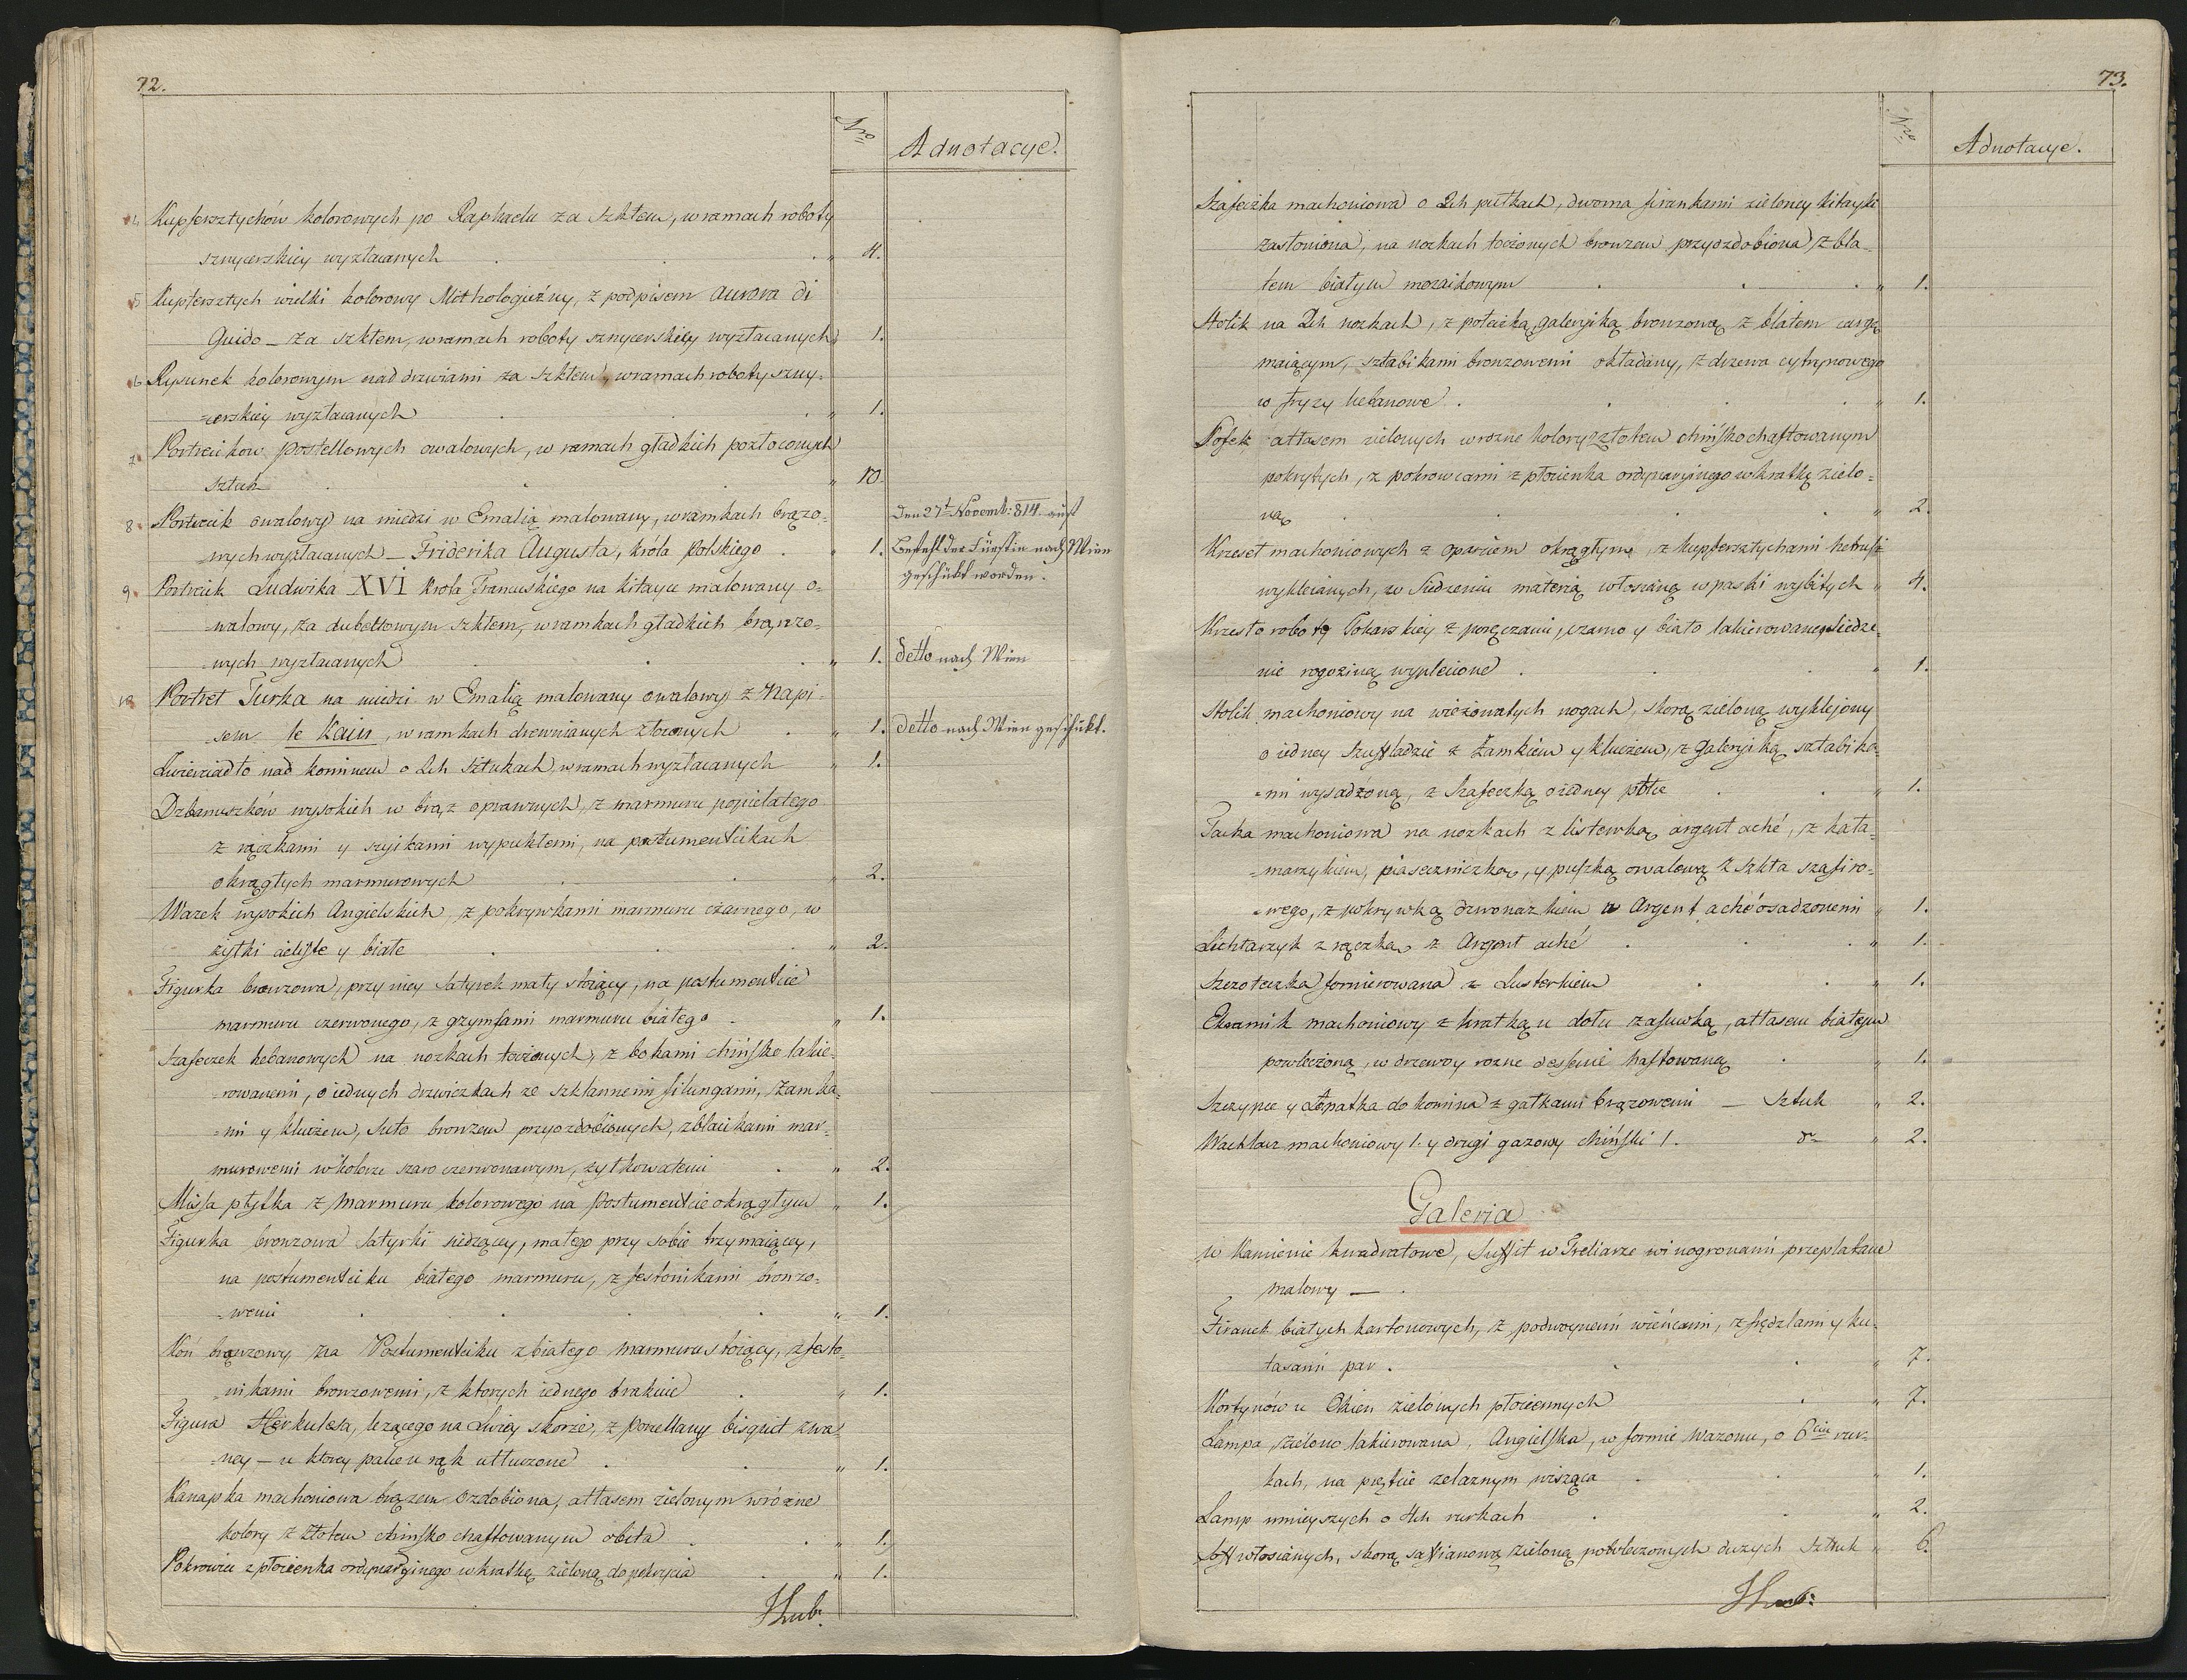 72.
Nro
Adnotacye.
4. Kupfersztychów kolorowych po Raphaelu za szkłem, w ramach roboty
sznycerskiey wyzłacanych . . . " 4.
5. Kupfersztych wielki kolorowy Mithologiczny, z podpisem Aurora di
Guido – za szkłem, w ramach roboty sznycerskiey wyzłacanych " 1.
6. Rysunek kolorowym nad drzwiami za szkłem, w ramach roboty szny-
cerskiey wyzłacanych . . . " 1.
7. Portrecików pastellowych owalowych, w ramach gładkich pozłoconych
sztuk . . . " 10.
8. Portrecik owalowy na miedzi w Emalią malowany, w ramkach brązo- Den 27t Novemb: 814. auf
wych wyzłacanych – Friderika Augusta, króla Polskiego . " 1. Befehl der Fürstin nach Wien
geschükt worden.
9. Portrecik Ludwika XVI Krola Francuskiego na kitayce malowany o-
walowy, za dubeltowym szkłem, w ramkach gładkich brązo-
wych wyzłacanych . . . " 1. detto nach Wien
10. Portret Turka na miedzi w Emalią malowany owalowy z Napi-
sem le Kain, w ramkach drewnianych złoconych . " 1. detto nach Wien geschükt.
Zwierciadło nad kominem o 2ch sztukach, w ramach wyzłacanych " 1.
Dzbanuszków wysokich w brąz oprawnych, z marmuru popielatego
z rączkami y szyikami wypukłemi, na postumencikach
okrągłych marmurowych . . " 2.
Wazek wysokich Angielskich, z pokrywkami marmuru czarnego, w
żyłki cieliste y białe . . . " 2.
Figurka bronzowa, przy niey Satyrek mały stoiący, na postumencie
marmuru czerwonego, z gzymsami marmuru białego . " 1.
Szafeczek hebanowych na nozkach toczonych, z bokami chińsko lakie-
rowanemi, o iednych drzwiczkach ze szklannemi filungami, zamka-
mi y kluczem, suto bronzem przyozdobionych, z blacikami mar-
murowemi w kolorze szaro czerwonawym, żyłkowatemi . " 2.
Missa płytka z marmuru kolorowego na Postumencie okrągłym " 1.
Figurka bronzowa Satyrki siedzącey, małego przy sobie trzymaiącey,
na postumenciku białego marmuru, z festonikami bronzo-
wemi . . . . " 1.
Koń brązowy na Postumenciku z białego marmuru stoiący, z festo-
nikami bronzowemi, z ktorych iednego brakuie . " 1.
Figura Herkulesa, lezącego na Lwiey skorze, z porcellany bisquit zwa-
ney – u ktorey palce u rąk utłuczone . . " 1.
Kanapka machoniowa brązem ozdobiona, atłasem zielonym w różne
kolory z złotem chińsko chaftowanym obita . . " 1.
Pokrowiec z płocienka ordynaryinego w kratkę zieloną do pokrycia . " 1.
Hub:
73.
Nro
Adnotacye.
Szafeczka machoniowa o 2ch pułkach, dwoma firankami zieloney kitayki
zasłoniona, na nozkach toczonych bronzem przyozdobiona, z bla-
tem białym mozaikowym . . . " 1.
Stolik na 2ch nozkach, z poleczką, galeryiką bronzową, z blatem
maiącym, sztabikami bronzowemi okładany, z drzewa cytrynowego
w fryzy hebanowe . . . . " 1.
Sofek atłasem zielonych w rozne kolory z złotem chińsko chaftowanym
pokrytych, z pokrowcami z płocienka ordynaryinego w kratkę zielo-
ną . . . " 2.
Krzeseł machoniowych z oparciem okrągłym, z kupfersztychami
wykleianych, w siedzeniu materią włosianą w paski wybitych " 4.
Krzesło roboty Tokarskiey z poręczami, czarno y biało lakierowane, siedze-
nie rogoziną wyplecione . . " 1.
Stolik machoniowy na nogach, skorą zieloną wyklejony
o iedney szuffladzie z zamkiem y kluczem, z Galeryiką sztabika-
mi wysadzoną, z szafeczką o iedney półce . . " 1.
Tacka machoniowa na nozkach z listewką argent aché, z kała-
marzykiem, piaseczniczką, y puszką owalową z szkła szafiro-
wego, z pokrywką dzwonazkiem w Argent aché osadzonemi " 1.
Lichtarzyk z rączką z Argent aché . . . " 1.
Szczoteczka fornierowana z Lusterkiem . . " 1.
Ekranik machoniowy z kratką u dołu zasuwką, atłasem białym
powleczoną, w drzewo y rozne dessenie haftowaną . " 1.
Szczypce y Łopatka do komina z gałkami brązowemi – Sztuk " 2.
Wachlarz machoniowy 1. y drugi gazowy chiński 1. do " 2.
Galeria
w Kamienie kwadratowe, Suffit w Treliarze winogronami przeplatane
malowy – .
Firanek białych kartonowych, z podwoynemi wieńcami, z frędzlami y ku-
tasami par . . . " 7.
Kortynów u Okien zielonych płociennych . " 7.
Lampa zielono lakierowana, Angielska, w formie Wazonu, o 6ciu rur-
kach, na pręcie zelaznym wisząca . . " 1.
Lamp mnieyszych o 4ch rurkach . . " 2.
Soff włosianych, skorą saffianową zieloną powleczonych duzych Sztuk " 6.
Hub: